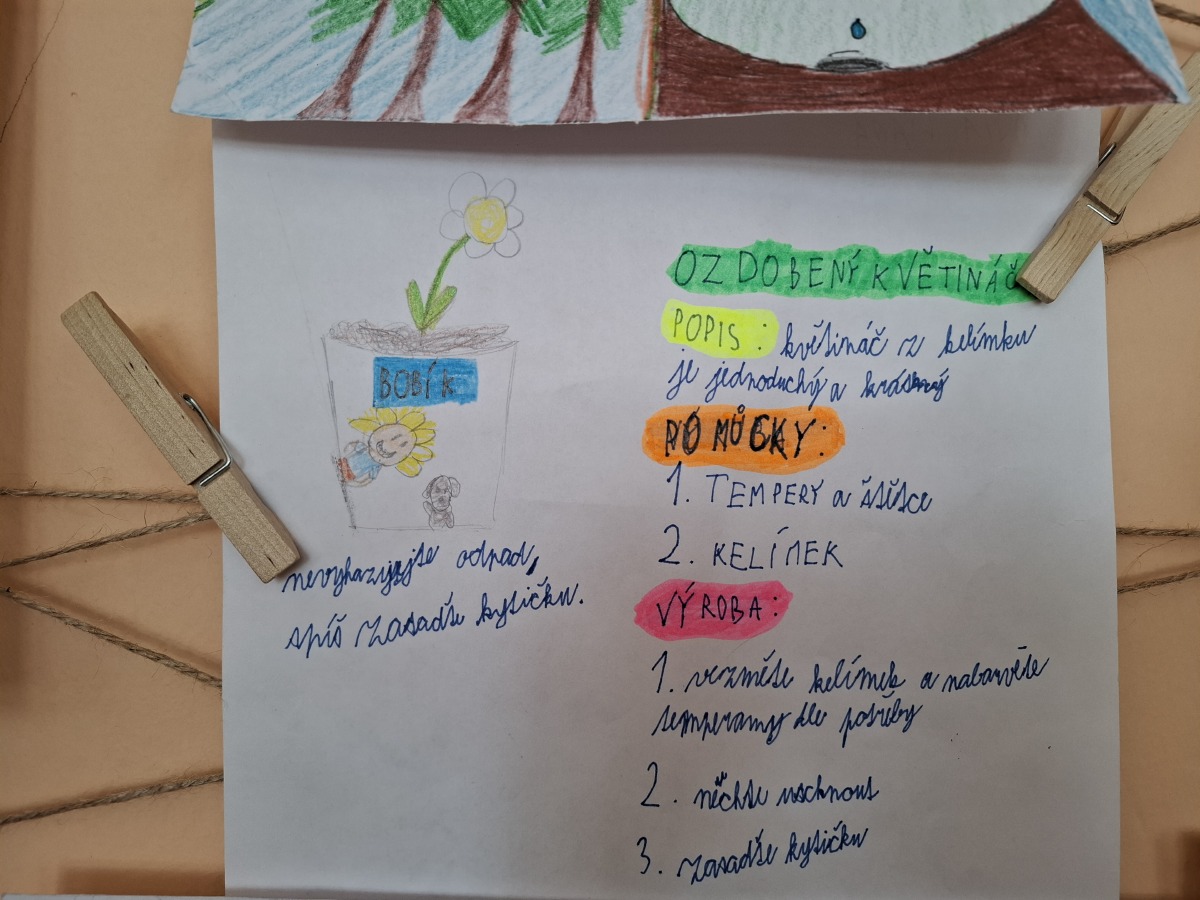 BOBÍK
nevyhazujte odpad,
spíš zasaďte kytičku.
OZDOBENÝ KVĚTINÁČ
POPIS: květináč z kelímku
je jednoduchý a krásný
POMŮCKY:
1. TEMPERY a štětce
2. KELÍMEK
VÝROBA:
1. vezměte kelímek a nabarvěte
temperamy dle potřeby
2. něchte uschnout
3. zasaďte kytičku